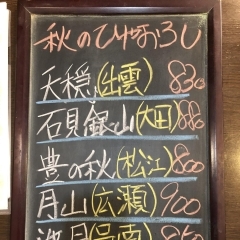 秋のひやおろし
天穏(出雲)830
石見銀山(大田)880
豊の秋(松江)800
月山(広瀬)900